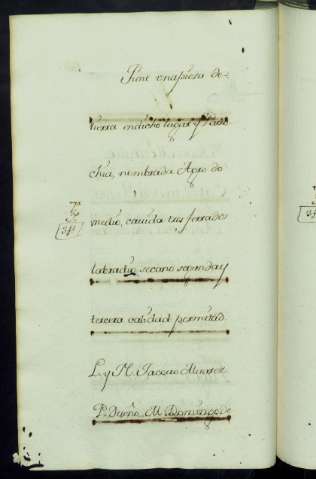 Tiene una pieza de
tierra en dicho lugar y Parro
chia, nombrada Agro do
medio, cavida tres ferrados
labradio secano segunda y
tercera calidad por mitad.
L. y M.
P. M. Domingo de